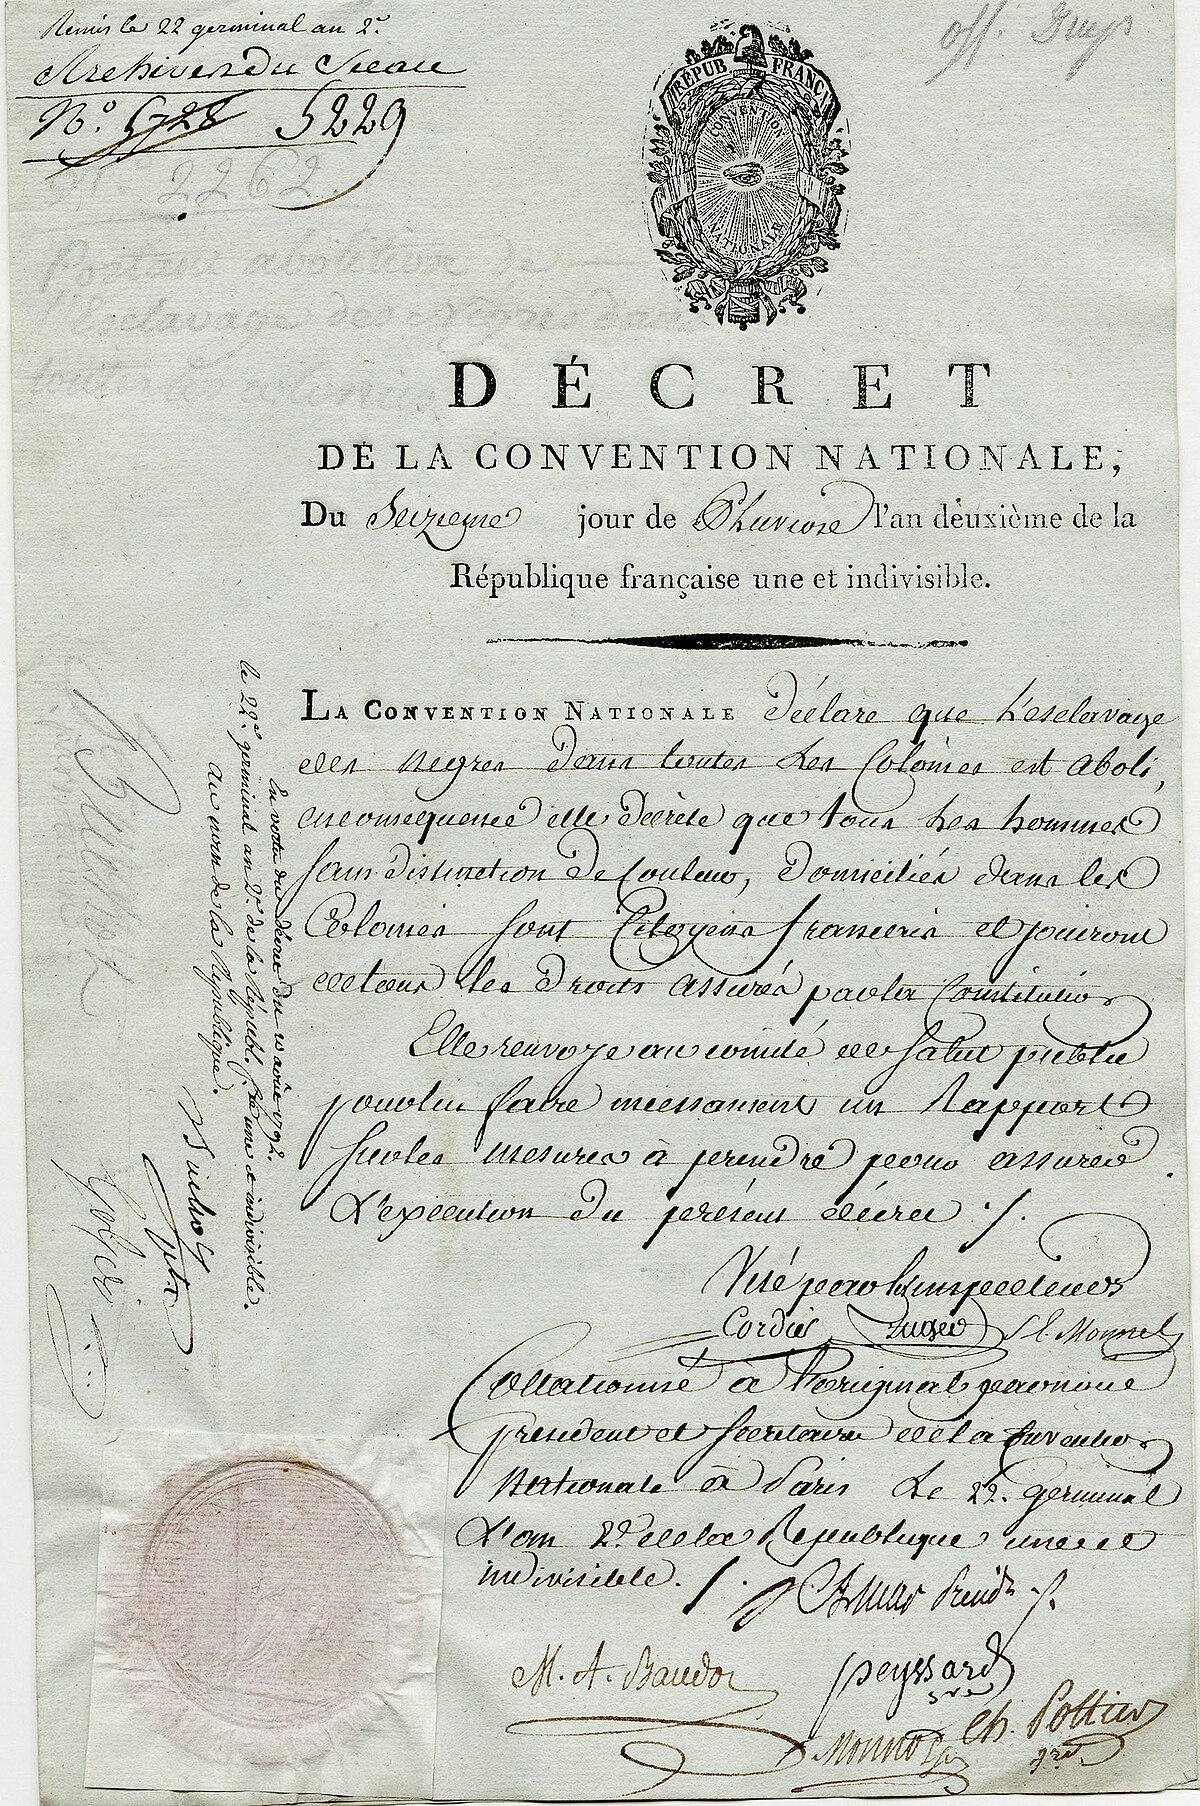 Remis le 22 germinal an 2e.
Archives du Sceau
N.o 5728 5229
N. 2262.
portant abolition de
l'esclavage des Nègres dans
toutes les colonies
RÉPUB. FRANÇAI
CONVENTION
NATIONALE
DÉCRET
DE LA CONVENTION NATIONALE,
Du Seizieme jour de Pluviose l'an deuxième de la
République française une et indivisible.
LA CONVENTION NATIONALE déclare que l'esclavage
des negres dans toutes les Colonies est aboli,
en consequence elle décrète que tous les hommes
sans distinction de Couleur, domiciliés dans les
Colonies sont Citoyens francais et jouiront
de tous les droits assurés par la Constitution
Elle renvoye au comité de salut public
pour lui faire incessament un Rapport
sur les mesures à prendre pour assurer
L'exécution du présent décret ./.
Visé par les inspecteurs
Cordier Auger S. E. Monnel
Collationné à l'original par nous
président et secrétaires de la Convention
Nationale à Paris Le 22. germinal
L'an 2e. de la République une et
indivisible. /.
Amar Présidt. ./.
M. A. Baudot
peyssard
sre
Monnot
Ch. Pottier
sre
En vertu du décret du 12 août 1792.
le 22e. germinal an 2e. de la Républ. fse. une et indivisible.
au nom de la République.
Buchot
Gohier